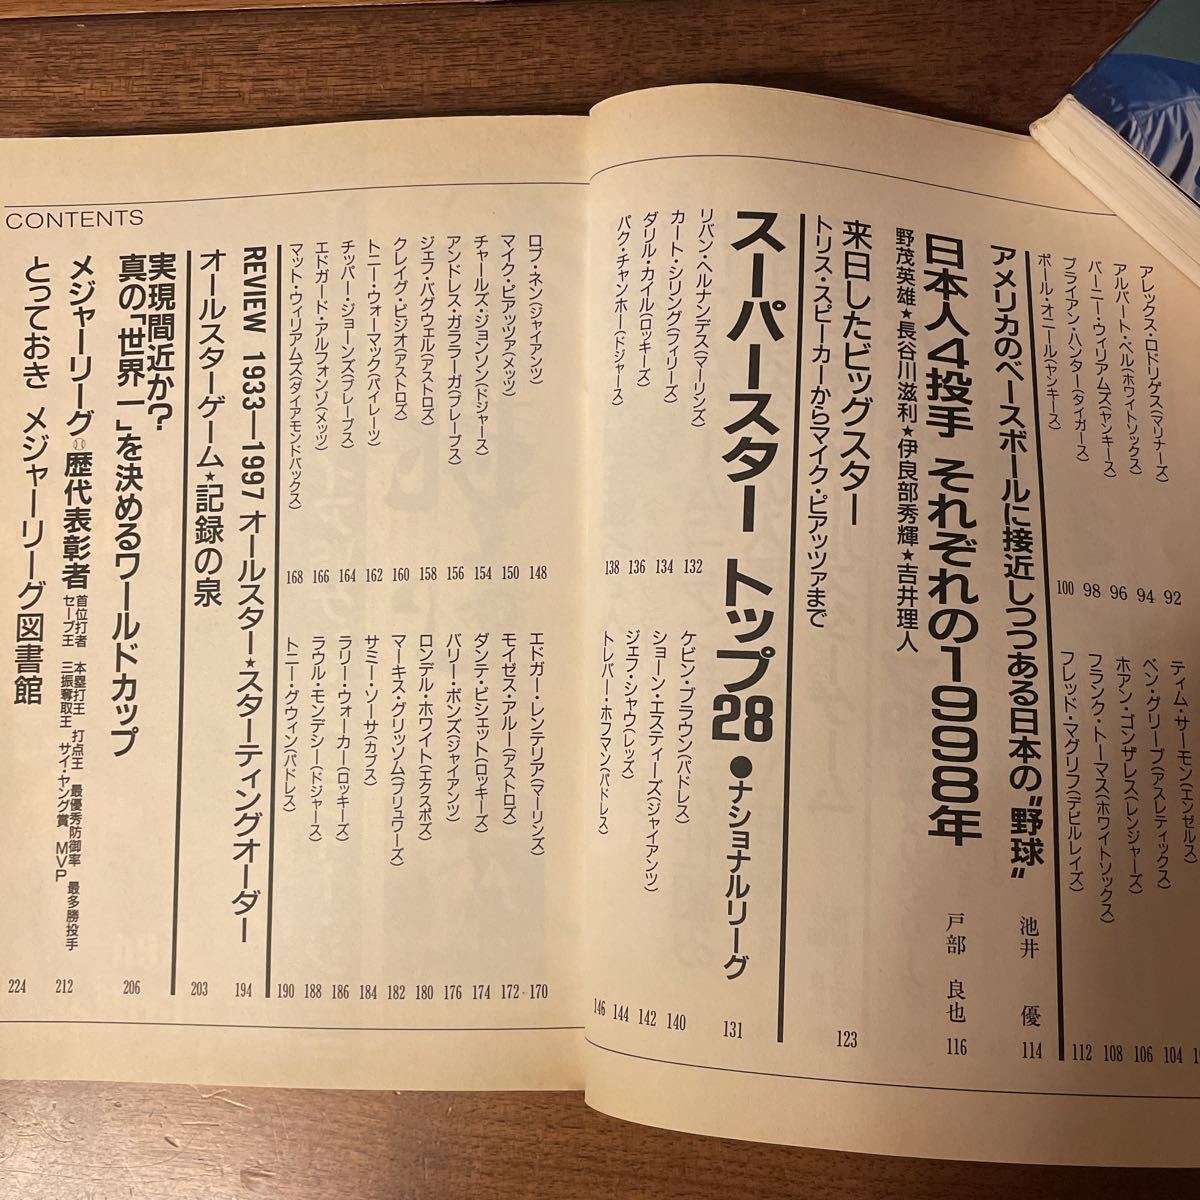 アレックス・ロドリゲス(マリナーズ) 92
アルバート・ベル(ホワイトソックス) 94
バーニー・ウィリアムズ(ヤンキース) 96
ブライアン・ハンター(タイガース) 98
ポール・オニール(ヤンキース) 100
ティム・サーモン(エンゼルス)
ベン・グリーブ(アスレティックス) 104
ホアン・ゴンザレス(レンジャーズ) 106
フランク・トーマス(ホワイトソックス) 108
フレッド・マグリフ(デビルレイズ) 112
アメリカのベースボールに接近しつつある日本の"野球" 池井 優 114
日本人4投手 それぞれの1998年 戸部 良也 116
野茂英雄★長谷川滋利★伊良部秀輝★吉井理人
来日したビッグスター 123
トリス・スピーカーからマイク・ピアッツァまで
スーパースター トップ28 ●ナショナルリーグ 131
リバン・ヘルナンデス(マーリンズ) 132
カート・シリング(フィリーズ) 134
ダリル・カイル(ロッキーズ) 136
パク・チャンホー(ドジャース) 138
ケビン・ブラウン(パドレス) 140
ショーン・エステイーズ(ジャイアンツ) 142
ジェフ・シャウ(レッズ) 144
トレバー・ホフマン(パドレス) 146
CONTENTS
ロブ・ネン(ジャイアンツ) 148
マイク・ピアッツァ(メッツ) 150
チャールズ・ジョンソン(ドジャース) 154
アンドレス・ガララーガ(ブレーブス) 156
ジェフ・バグウェル(アストロズ) 158
クレイグ・ビジオ(アストロズ) 160
トニー・ウォーマック(パイレーツ) 162
チッパー・ジョーンズ(ブレーブス) 164
エドガード・アルフォンソ(メッツ) 166
マット・ウィリアムズ(ダイアモンドバックス) 168
エドガー・レンテリア(マーリンズ) 170
モイゼス・アルー(アストロズ) 172
ダンテ・ビシェット(ロッキーズ) 174
バリー・ボンズ(ジャイアンツ) 176
ロンデル・ホワイト(エクスポズ) 180
マーキス・グリッソム(ブリュワーズ) 182
サミー・ソーサ(カブス) 184
ラリー・ウォーカー(ロッキーズ) 186
ラウル・モンデシー(ドジャース) 188
トニー・グウィン(パドレス) 190
REVIEW 1933—1997 オールスター★スターティングオーダー 194
オールスターゲーム★記録の泉 203
実現間近か?
真の「世界一」を決めるワールドカップ 206
メジャーリーグ 歴代表彰者 首位打者 本塁打王 打点王 最優秀防御率 最多勝投手 212
セーブ王 三振奪取王 サイ・ヤング賞 MVP
とっておき メジャーリーグ図書館 224